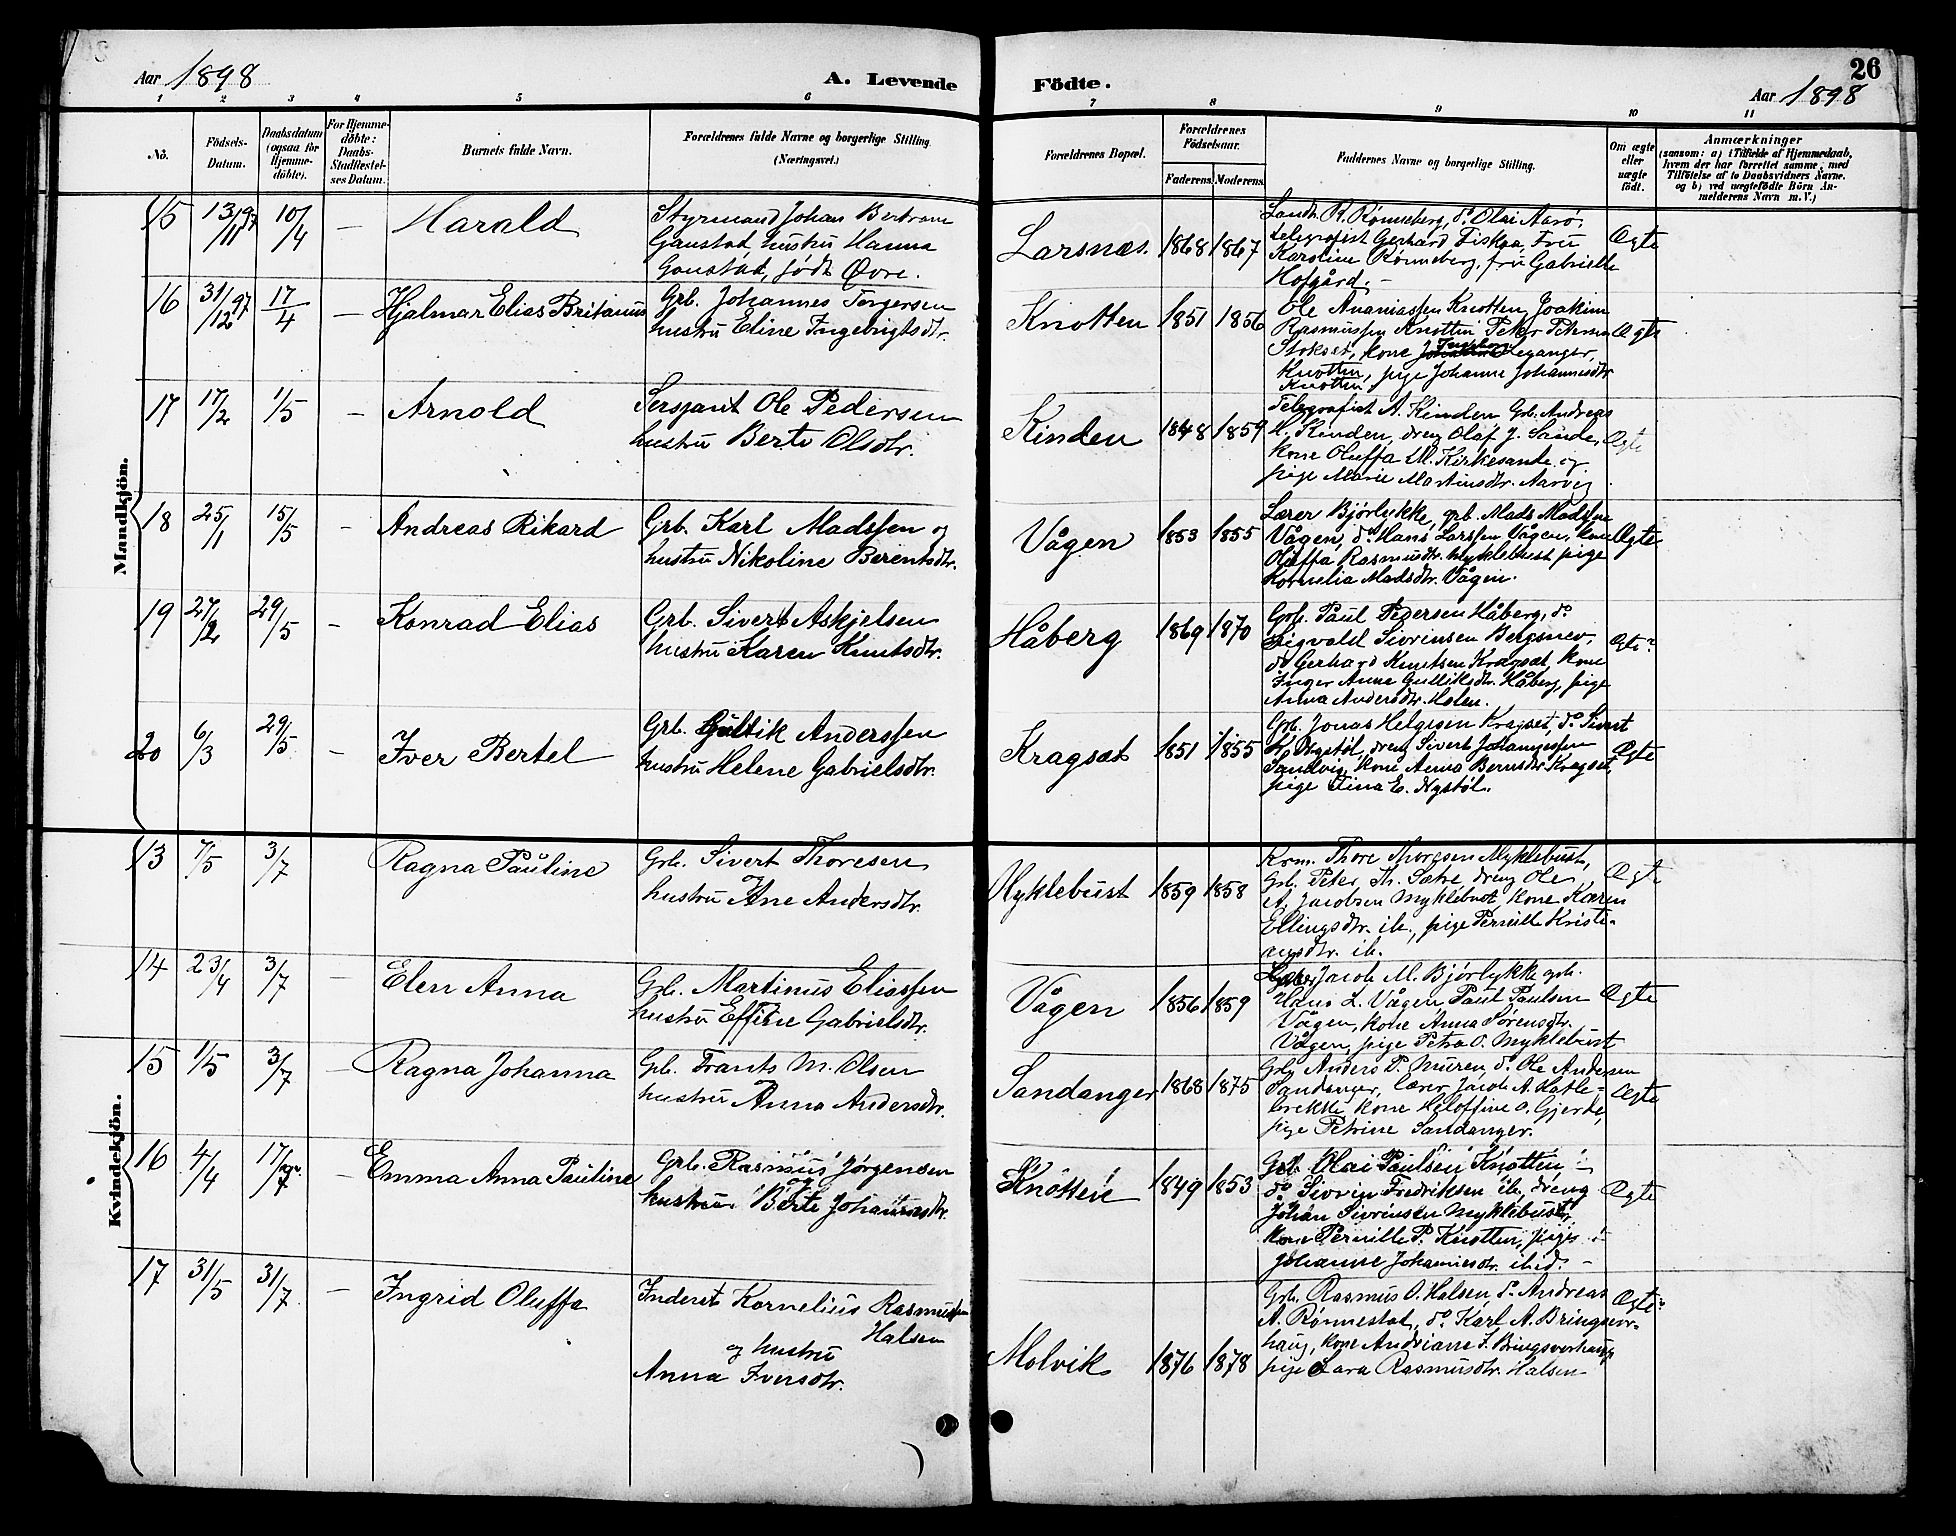 Aar 1898
A. Levende
Födte.
26
Aar 1898
1 2 3 4 5 6 7 8 9 10 11
No.
Födsels-
Datum.
Daabsdatum
(ogsaa for
Hjemme-
döbte).
For Hjemme-
döbte:
Daabs-
Stadfæstel-
ses Datum.
Barnets fulde Navn.
Forældrenes fulde Navne og borgerlige Stilling.
(Næringsvei.)
Forældrenes Bopæl.
Forældrenes
Födselsaar.
Faderens. Moderens.
Faddernes Navne og borgerlige Stilling.
Om ægte
eller
uægte
födt.
Anmærkninger
(saasom: a) i Tilfælde af Hjemmedaab,
hvem der har forrettet samme, med
Tilföielse af to Daabsvidners Navne,
og b) ved uægtefödte Börn An-
melderens Navn m. V.)
Mandkjön.
15 13/11 97 10/4 — Harald
Styrmand Johan Bertram
Gaustad, hustru Hanna
Gaustad, født Øvre.
Larsnæs. 1868 1867
Landh. R. Rønneberg, do Olai Aarø,
telegrafist Gerhard Fiskaa, Fru
Karoline Rønneberg, fru Gabrielle
Hofgård. —
Ægte
16 31/12 97 17/4 — Hjalmar Elias Britanus
Grb. Johannes Torgersen
hustru Eline Ingebrigtsdtr.
Knotten 1851 1856
Ole Ananiassen Knotten, Joakim
Rasmussen Knotten Peter Petersen
Stokset, kone Ingeborg Oleganger,
Knotten, pige Johanne Johannesdtr
Knotten
Ægte
17 17/2 1/5 — Arnold
Sersjant Ole Pedersen
hustru Berte Olsdtr.
Kinden 1848 1859
Telegrafist A. Kinden, Grb. Andreas
H. Kinden, dreng Olaf J. Sande,
kone Oluffa M. Kirkesande og
pige Marie Martinsdtr. Aarvig.
Ægte
18 25/1 15/5 — Andreas Rikard
Grb. Karl Madssen og
hustru Nikoline Berentsdtr.
Vågen 1853 1855
Lærer Bjørlykke, grb. Mads Madssen
Vågen, do Hans Larssen Vågen, kone
Oluffa Rasmusdtr. Myklebust pige
Kornelia Madsdtr. Vågen.
Ægte
19 27/2 29/5 — Konrad Elias
Grb. Sivert Askjelsen
hustru Karen Knutsdtr.
Håberg 1869 1870
Grb. Paul Pedersen Håberg, do
Sigvald Sivrinsen Bergsnev,
do Gerhard Knutsen Kragsæt, kone
Inger Anne Gulliksdtr. Håberg, pige
Anna Andersdtr. Holen.
Ægte
20 6/3 29/5 — Iver Bertel
Grb. Gullik Anderssen
hustru Helene Gabrielsdtr.
Kragsæt 1851 1855
Grb. Jonas Helgesen Kragset, do Sivert
K. Nystøl, dreng Sivert Johannessen
Sandvig, kone Anna Berntsdtr Kragset,
pige Stina E. Nystøl.
Ægte
Kvindekjön.
13 7/5 3/7 Ragna Pauline
Grb. Sivert Thoresen
hustru Ane Andersdtr.
Myklebust 1859 1858
Krm. Thore Thoresen Myklebust,
Grb. Peter Th. Sætre, dreng Ole
A. Jacobsen Myklebust, kone Karen
Ellingsdtr. ib., pige Pernille Kristi-
ansdtr. ib.
Ægte
14 23/4 3/7 — Elen Anna
Grb. Martinus Eliassen
hustru Effine Gabrielsdtr.
Vågen 1856 1859
Lærer Jacob M. Bjørlykke, grb.
Hans L. Vågen, Paul Paulsen
Vågen, kone Anna Sørensdtr.
Vågen, pige Petra O. Myklebust
Ægte
15 1/5 3/7 — Ragna Johanna
Grb. Frants M. Olsen
hustru Anna Andersdtr.
Sandanger 1868 1875
Grb. Anders P. Muren, do Ole Andersen
Sandanger, lærer Jacob A. Hatle-
brekke kone Heloffine O. Gjerde,
pige Petrine Sandanger.
Ægte
16 4/4 17/7 — Emma Anna Pauline
Grb. Rasmus Jørgensen
hustru Berte Johannesdtr.
Knotten 1849 1853
Grb. Olai Paulsen Knotten,
do Sivrin Fredriksen ib., dreng
Johan Sivrinsen Myklebust,
kone Pernille P. Knotten, pige
Johanne Johannesdtr. ibid. —
Ægte
17 31/5 31/7 — Ingrid Oluffa
Inderst Kornelius Rasmussen
Halsen
og hustru
Anna Iversdtr.
Molvik 1876 1878
Grb. Rasmus O. Halsen, do Andreas
A. Rønnestad, do Karl A. Bringsvor-
haug, kone Andriane J. Bringsvorhaug
pige Lara Rasmusdtr. Halsen
Ægte